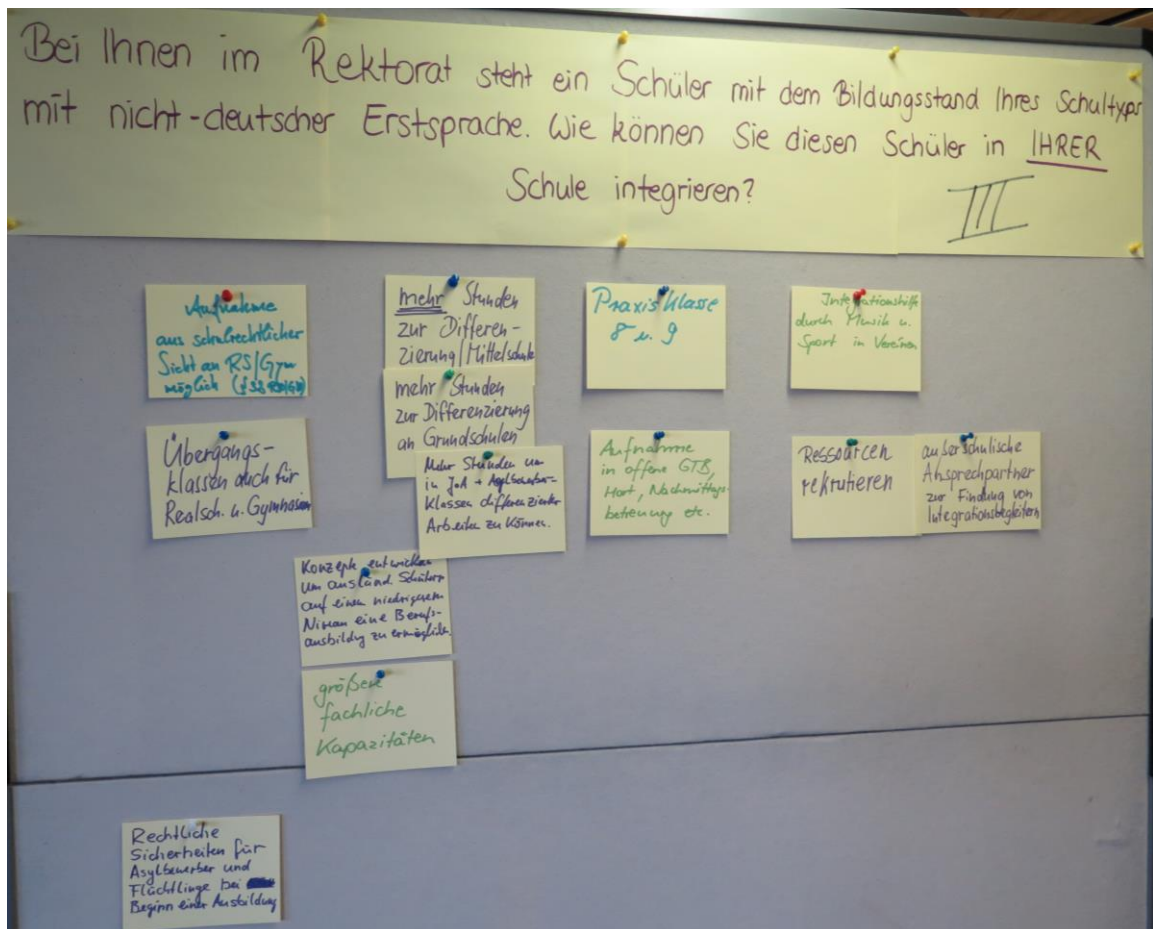 Bei Ihnen im Rektorat steht ein Schüler mit dem Bildungsstand Ihres Schultyps
mit nicht-deutscher Erstsprache. Wie können Sie diesen Schüler in IHRER
Schule integrieren?
III
Aufnahme
aus schulrechtlicher
Sicht an RS/Gym
möglich
mehr Stunden
zur Differen-
zierung/Mittelschule
Praxisklasse
8 u. 9
Integrationshilfe
durch Musik u.
Sport in Vereinen
mehr Stunden
zur Differenzierung
an Grundschulen
Übergangs-
klassen auch für
Realsch. u. Gymnasien
Mehr Stunden um
in JoA + Asylbewerber-
Klassen differenzierter
Arbeiten zu können.
Aufnahme
in offene GTB,
Hort, Nachmittags-
betreuung etc.
Ressourcen
rekrutieren
außerschulische
Ansprechpartner
zur Findung von
Integrationsbegleitern
Konzepte entwickeln
um ausländ. Schülern
auf einem niedrigerem
Niveau eine Berufs-
ausbildung zu ermöglichen.
größere
fachliche
Kapazitäten
Rechtliche
Sicherheiten für
Asylbewerber und
Flüchtlinge bei
Beginn einer Ausbildung